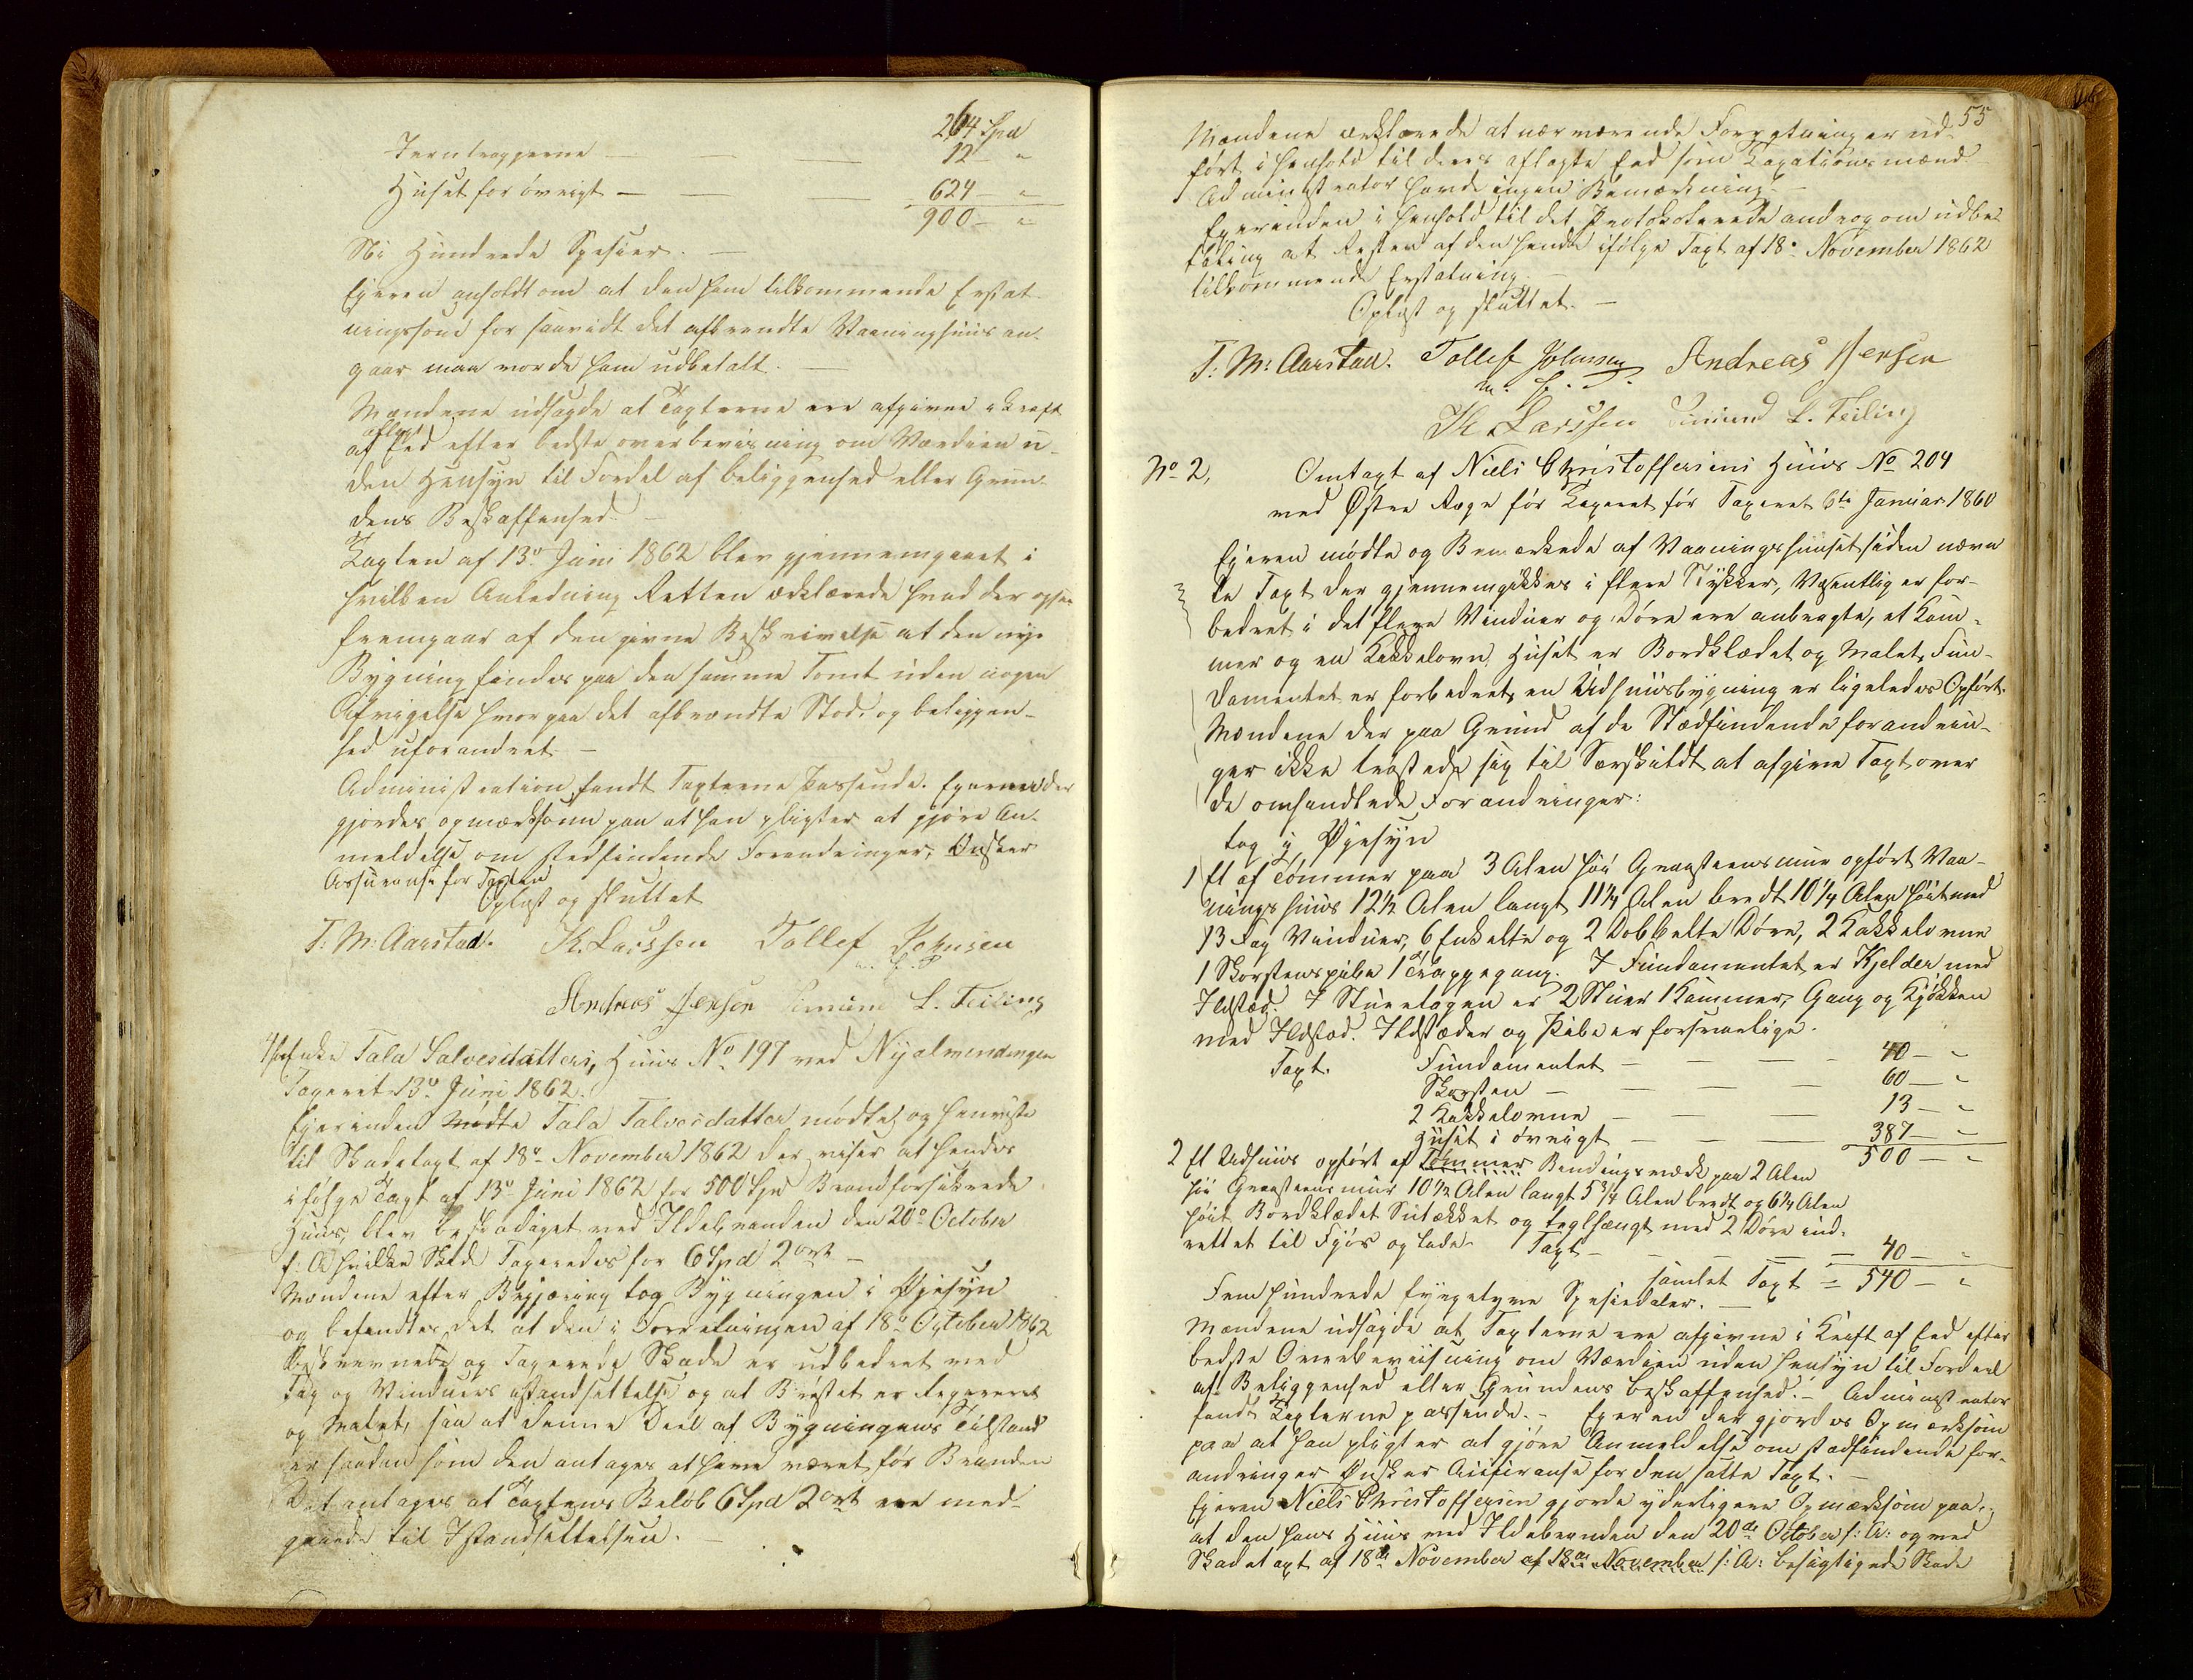 264 Spd
Jerntrapperne — — — 12 "
Huset for øvrigt — — — 624 — "
900 — "
Ni Hundrede Spesier. —
Ejeren anholdt om at den ham tilkommende Erstat-
ningssom for saavidt det afbrendte Vaaningshuus an-
gaar maa vorde ham udbetalt. —
Mændene udsagde at Taxterne ere afgivne i Kraft
aflagt
af Eed efter bedste overbevisning om Værdien u-
den Hensyn til Fordel af beliggenhed eller Grun-
dens Beskaffenhed. —
Taxten af 13de Juni 1862 blev gjennemgaaet i
hvilken Anledning Retten erklærede hvad der ogsaa
fremgaar af den givne Beskrivelse at den nye
Bygning findes paa den samme Tomt uden nogen
Afvigelse hvorpaa det afbrændte Stod, og beliggen-
hed uforandret —
Administration fandt Taxterne Passende. Ejeren der
gjordes opmærksom paa at han pligter at gjøre An-
meldelse om stedfindende Forandringer, Ønsker
Assurance for Taxten
Oplæst og sluttet
T: M: Aarstad. K. Larssen Tollef Johnsen
m. f. P.
Andreas Jensen Simund L. Teiling
Enke Tala Salvesdatters, Huus No 197 ved Nyalmendingen
Taxeret 13de Juni 1862.
Ejerinden mødte Tala Talvesdatter mødte og henviste
til Skadetaxt af 18de November 1862 der viser at hendes
ifølge Taxt af 13de Juni 1862 for 500 Spd Brandforsikrede
Huus, blev beskadiget ved Ildebranden den 20de October
f: A hvilken Skade Taxeredes for 6 Spd 2 ort —
Mændene efter Begjæring tog Bygningen i Øjesyn
og befandtes det at den i Forretningen af 18de October 1862
beskrevne og Taxerede Skade er udbedret med
Tag og Vinduers istandsettelse og at Brøstet er Repareret
og Malet, saa at denne Deel af Bygningens Tilstand
er saadan som den antages at have været før Branden
Det antages at Taxtens Beløb 6 Spd 2 ort ere med-
gaaede til Istandsettelsen. —
55
Mændene erklærede at nærværende Forretning er ud-
ført i Henhold til deres aflagte Eed som Taxationsmænd
Administrator havde ingen Bemærkning. —
Ejerinden i Henhold til det Protokolerede androg om udbe-
taling at Resten af den hende ifølge Taxt af 18de November 1862
tilkommende Erstatning. —
Oplæst og sluttet. —
T: M: Aarstad. Tollef Johnsen Andreas Jensen
m. f. P.
K. Larssen Simund L. Teiling
No 2, Omtaxt af Niels Christoffersens Huus No 204
ved Østre Røge før Taxeret før Taxeret 6te Januar 1860
Ejeren mødte og Bemærkede af Vaaningshuuset siden nævn-
te Taxt der gjennemgikkes i flere Stykker, Væsentlig er for-
bedret i det flere Vinduer og Døre ere anbragte, et Kam-
mer og en Kakkelovn, Huset er Bordklædet og Malet, Fun-
damentet er forbedret, en Udhuusbygning er ligeledes Opført.
Mændene der paa Grund af de Stædfindende forandrin-
ger ikke trøstede sig til Særskildt at afgive Taxt over
de omhandlede Forandringer:
tog i Øjesyn
1 Et af Tømmer paa 3 Alen høi Graasteensmuur opført Vaa-
ningshuus 12½ Alen langt 11¼ Alen bredt 10¼ Alen høit med
13 Fag Vinduer, 6 Enkelte og 2 Dobbelte Døre, 2 Kakkelovne
1 Skorstenspibe 1 Trappegang. I Fundamentet er Kjelder med
Ildsted. I Stueetagen er 2 Stuer 1 Kammer, Gang og Kjøkken
med Ildsted. Ildstæder og Pibe er forsvarlige.
Taxt. Fundamentet — — — 40 — "
Skorsten — — — 60 — "
2 Kakkelovne — — — 13 — "
Huset i øvrigt — — — 387 — "
500 — "
2 Et Udhuus opført af Tømmer Bindingsværk paa 2 Alen
høi Graasteensmuur 10½ Alen langt 5¾ Alen bredt og 6¼ Alen
høit Bordklædet Sutækket og teglhængt med 2 Døre ind-
rettet til Fjøs og lade. Taxt — — — 40 — "
samlet Taxt = 540 — "
Femhundrede fyrgetyve Spesiedaler. —
Mændene udsagde at Taxterne ere afgivne i Kraft af Eed efter
bedste Overbeviisning om Værdien uden hensyn til Fordeel
af Beliggenhed eller Grundens beskaffenhed. — Administrator
fandt Taxterne passende. — Ejeren der gjordes Opmærksom
paa at han pligter at gjøre Anmeldelse om stædfindende for-
andringer Ønsker Assurance for den satte Taxt. —
Ejeren Niels Christoffersen gjorde yderligere Opmærksom paa,
at den hans Huus ved Ildebranden den 20de October f: A: og ved
Skadetaxt af 18de November af 18de November f: A: besigtigede Skade